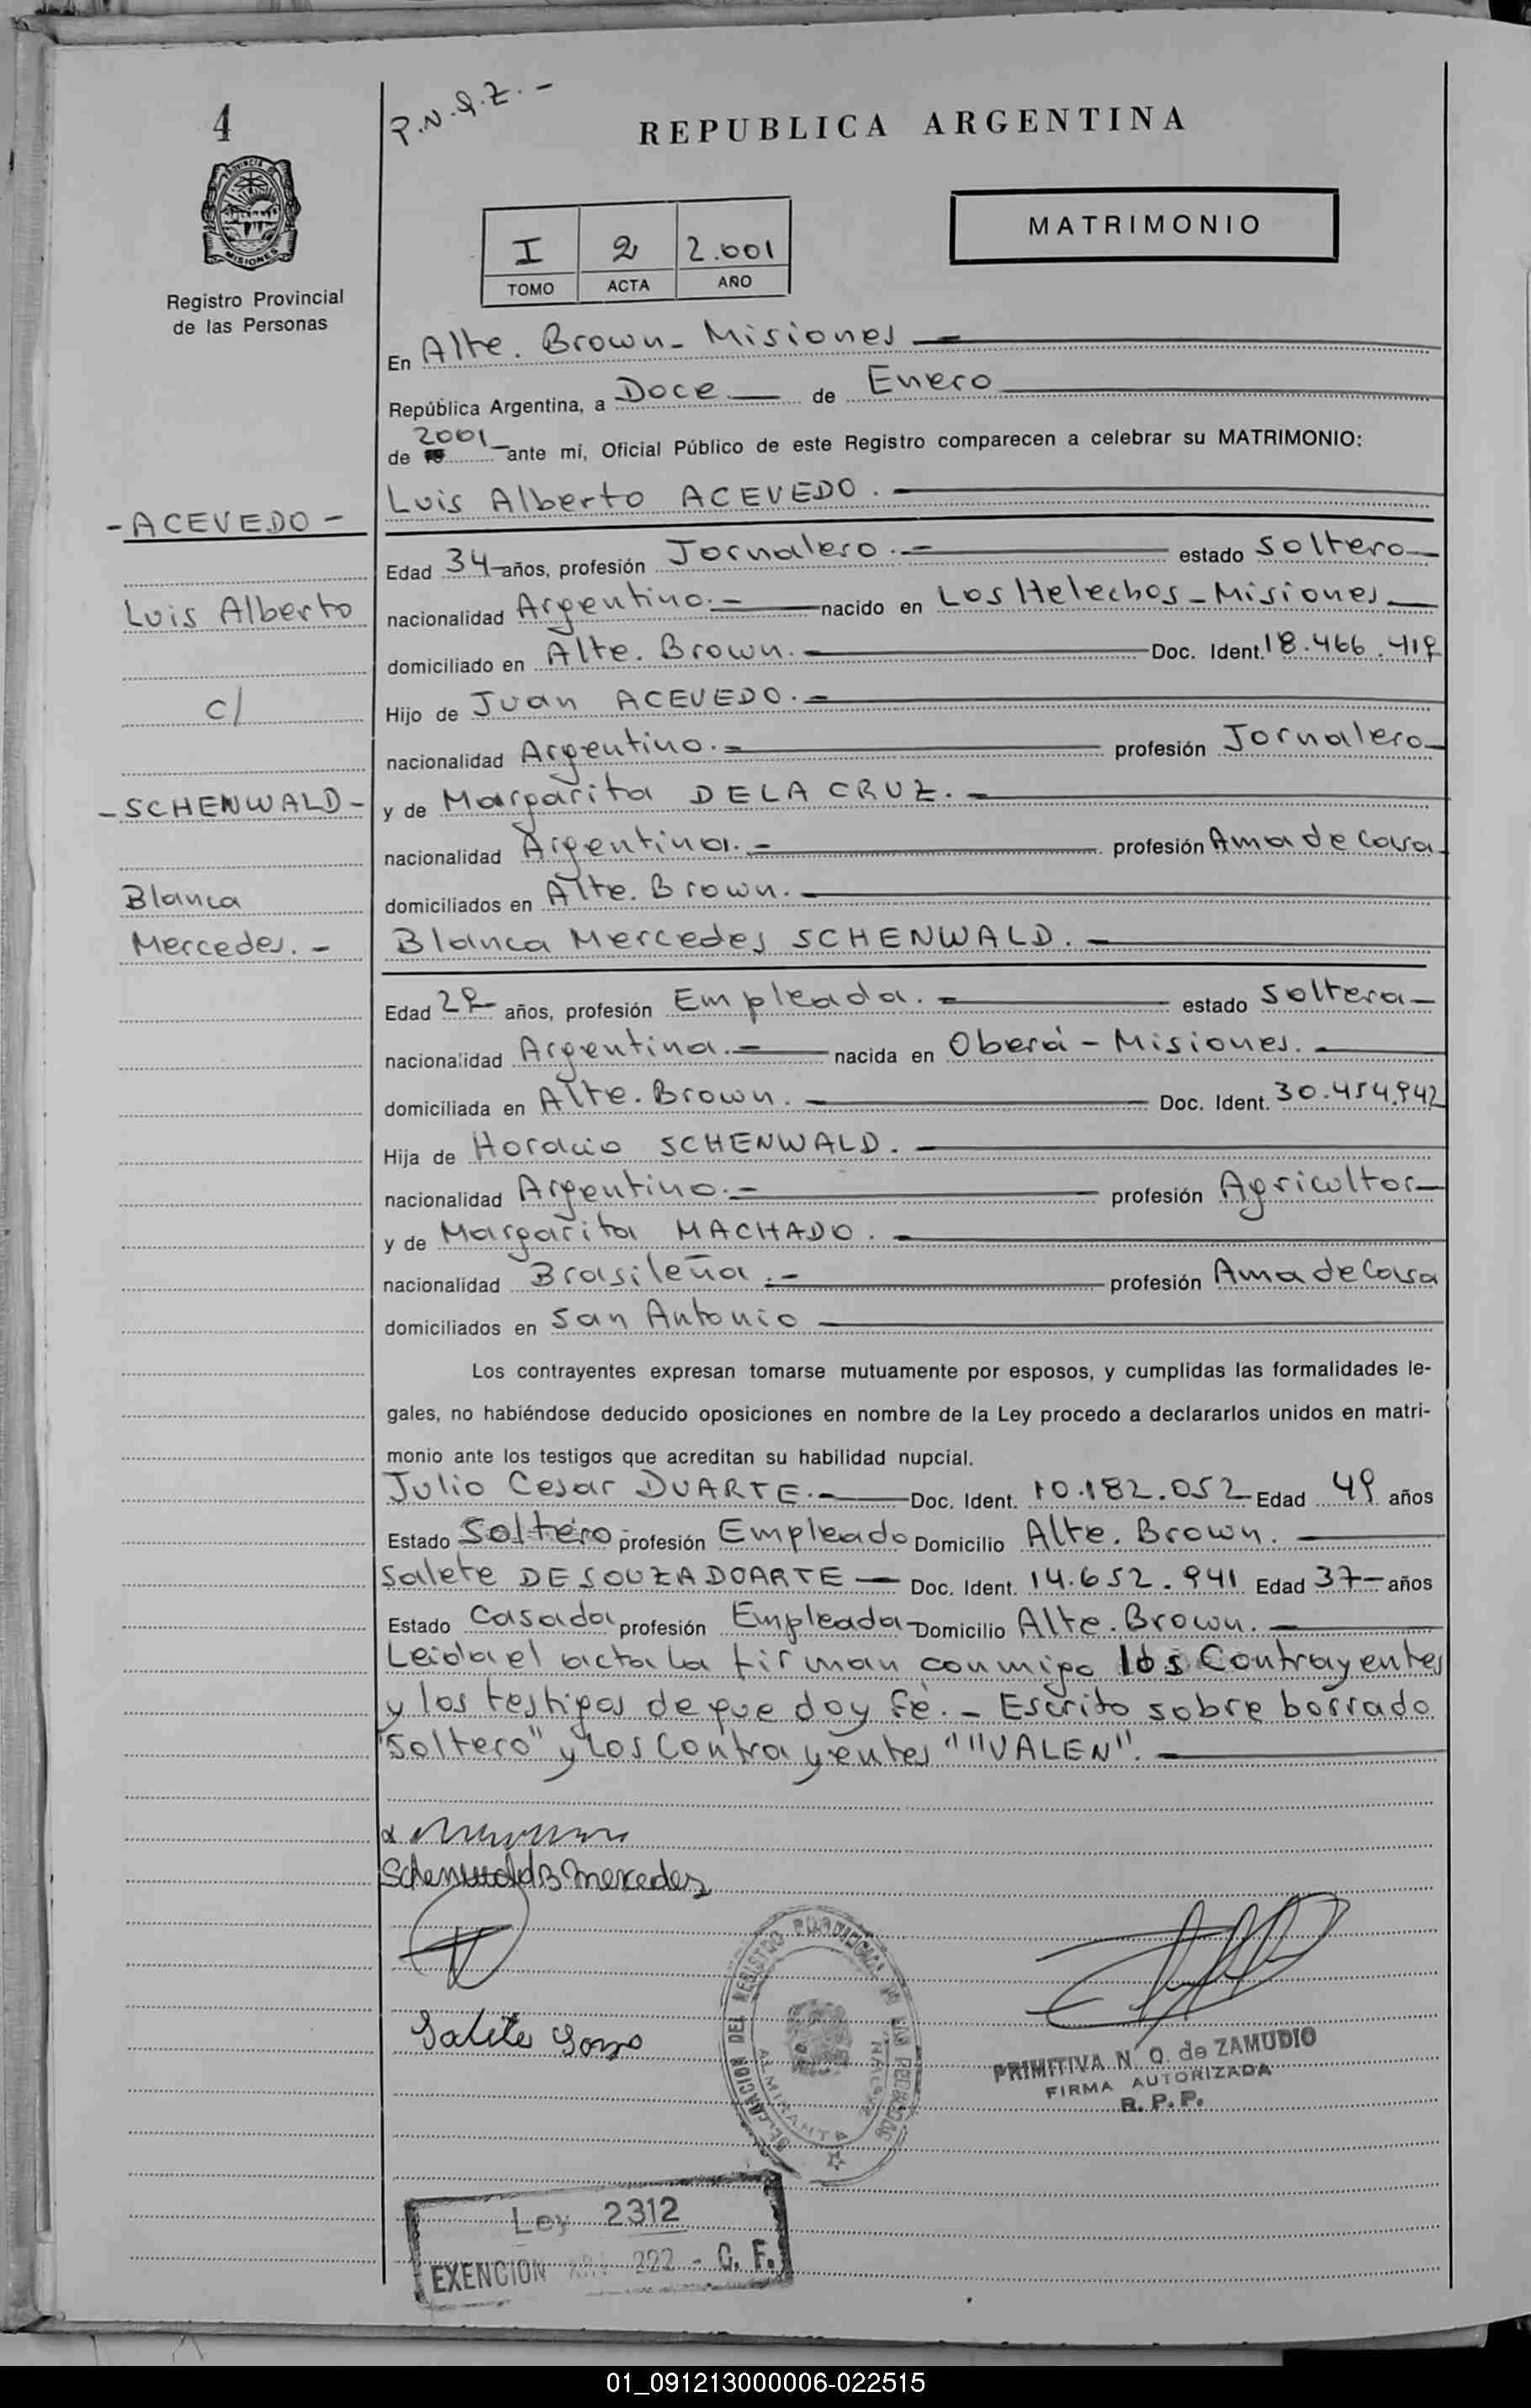 4
P.N.Q.Z.-
REPUBLICA ARGENTINA
PROVINCIA DE
MISIONES
MATRIMONIO
I 2 2.001
TOMO ACTA AÑO
Registro Provincial
de las Personas
En Alte. Brown - Misiones
República Argentina, a Doce de Enero
de 2001 ante mí, Oficial Público de este Registro comparecen a celebrar su MATRIMONIO:
Luis Alberto ACEVEDO.
-ACEVEDO-
Edad 34 años, profesión Jornalero.- estado Soltero
Luis Alberto
nacionalidad Argentino.- nacido en Los Helechos - Misiones
domiciliado en Alte. Brown. Doc. Ident. 18.466.419
c/
Hijo de Juan ACEVEDO.-
nacionalidad Argentino.- profesión Jornalero
-SCHENWALD-
y de Margarita DE LA CRUZ.-
nacionalidad Argentina.- profesión Ama de Casa
Blanca
domiciliados en Alte. Brown.
Mercedes.-
Blanca Mercedes SCHENWALD.-
Edad 29 años, profesión Empleada.- estado Soltera
nacionalidad Argentina.- nacida en Oberá - Misiones.
domiciliada en Alte. Brown. Doc. Ident. 30.454.942
Hija de Horacio SCHENWALD.
nacionalidad Argentino.- profesión Agricultor
y de Margarita MACHADO.
nacionalidad Brasileña.- profesión Ama de Casa
domiciliados en San Antonio
Los contrayentes expresan tomarse mutuamente por esposos, y cumplidas las formalidades le-
gales, no habiéndose deducido oposiciones en nombre de la Ley procedo a declararlos unidos en matri-
monio ante los testigos que acreditan su habilidad nupcial.
Julio Cesar DUARTE.- Doc. Ident. 10.182.052 Edad 49 años
Estado Soltero profesión Empleado Domicilio Alte. Brown.
Salete DE SOUZA DOARTE Doc. Ident. 14.652.941 Edad 37 años
Estado Casada profesión Empleada Domicilio Alte. Brown.
Leida el acta la firman conmigo los Contrayentes
y los testigos de que doy fé.- Escrito sobre borrado
"Soltero" y los Contrayentes" "VALEN".
Schenwald B Mercedes
PRIMITIVA N. Q. de ZAMUDIO
FIRMA AUTORIZADA
R. P. P.
Ley 2312
EXENCION 222 - C. F.
01_091213000006-022515